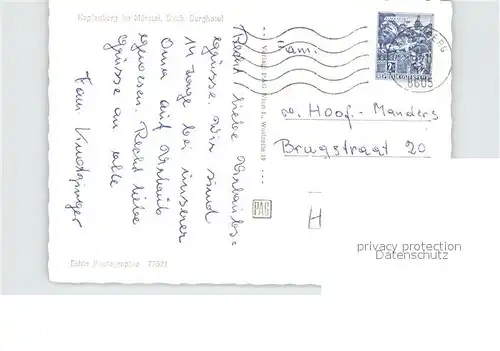 Kapfenberg im Mürztal, Stmk. Burghotel
Recht liebe Urlaubs=
grüsse. Wir sind
14 Tage bei unserer
Oma auf Urlaub
gewesen. Recht liebe
Grüsse an alle
Fam.
Echte Photographie
Verlag PAG Wien
PAG
Fam.
v. Hoof-Manders
Brugstraat 20
H
8605
REPUBLIK ÖSTERREICH
privacy protection
Datenschutz